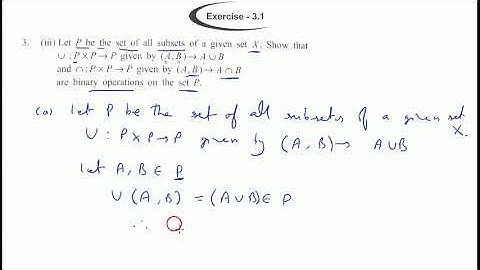 Exercise - 3.1
3. (iii) Let P be the set of all subsets of a given set X. Show that
∪ : P × P → P given by (A, B) → A ∪ B
and ∩ : P × P → P given by (A, B) → A ∩ B
are binary operations on the set P.
(a) Let P be the set of all subsets of a given set X.
∪ : P × P → P given by (A, B) → A ∪ B
Let A, B ∈ P
∪ (A, B) = (A ∪ B) ∈ P
∴